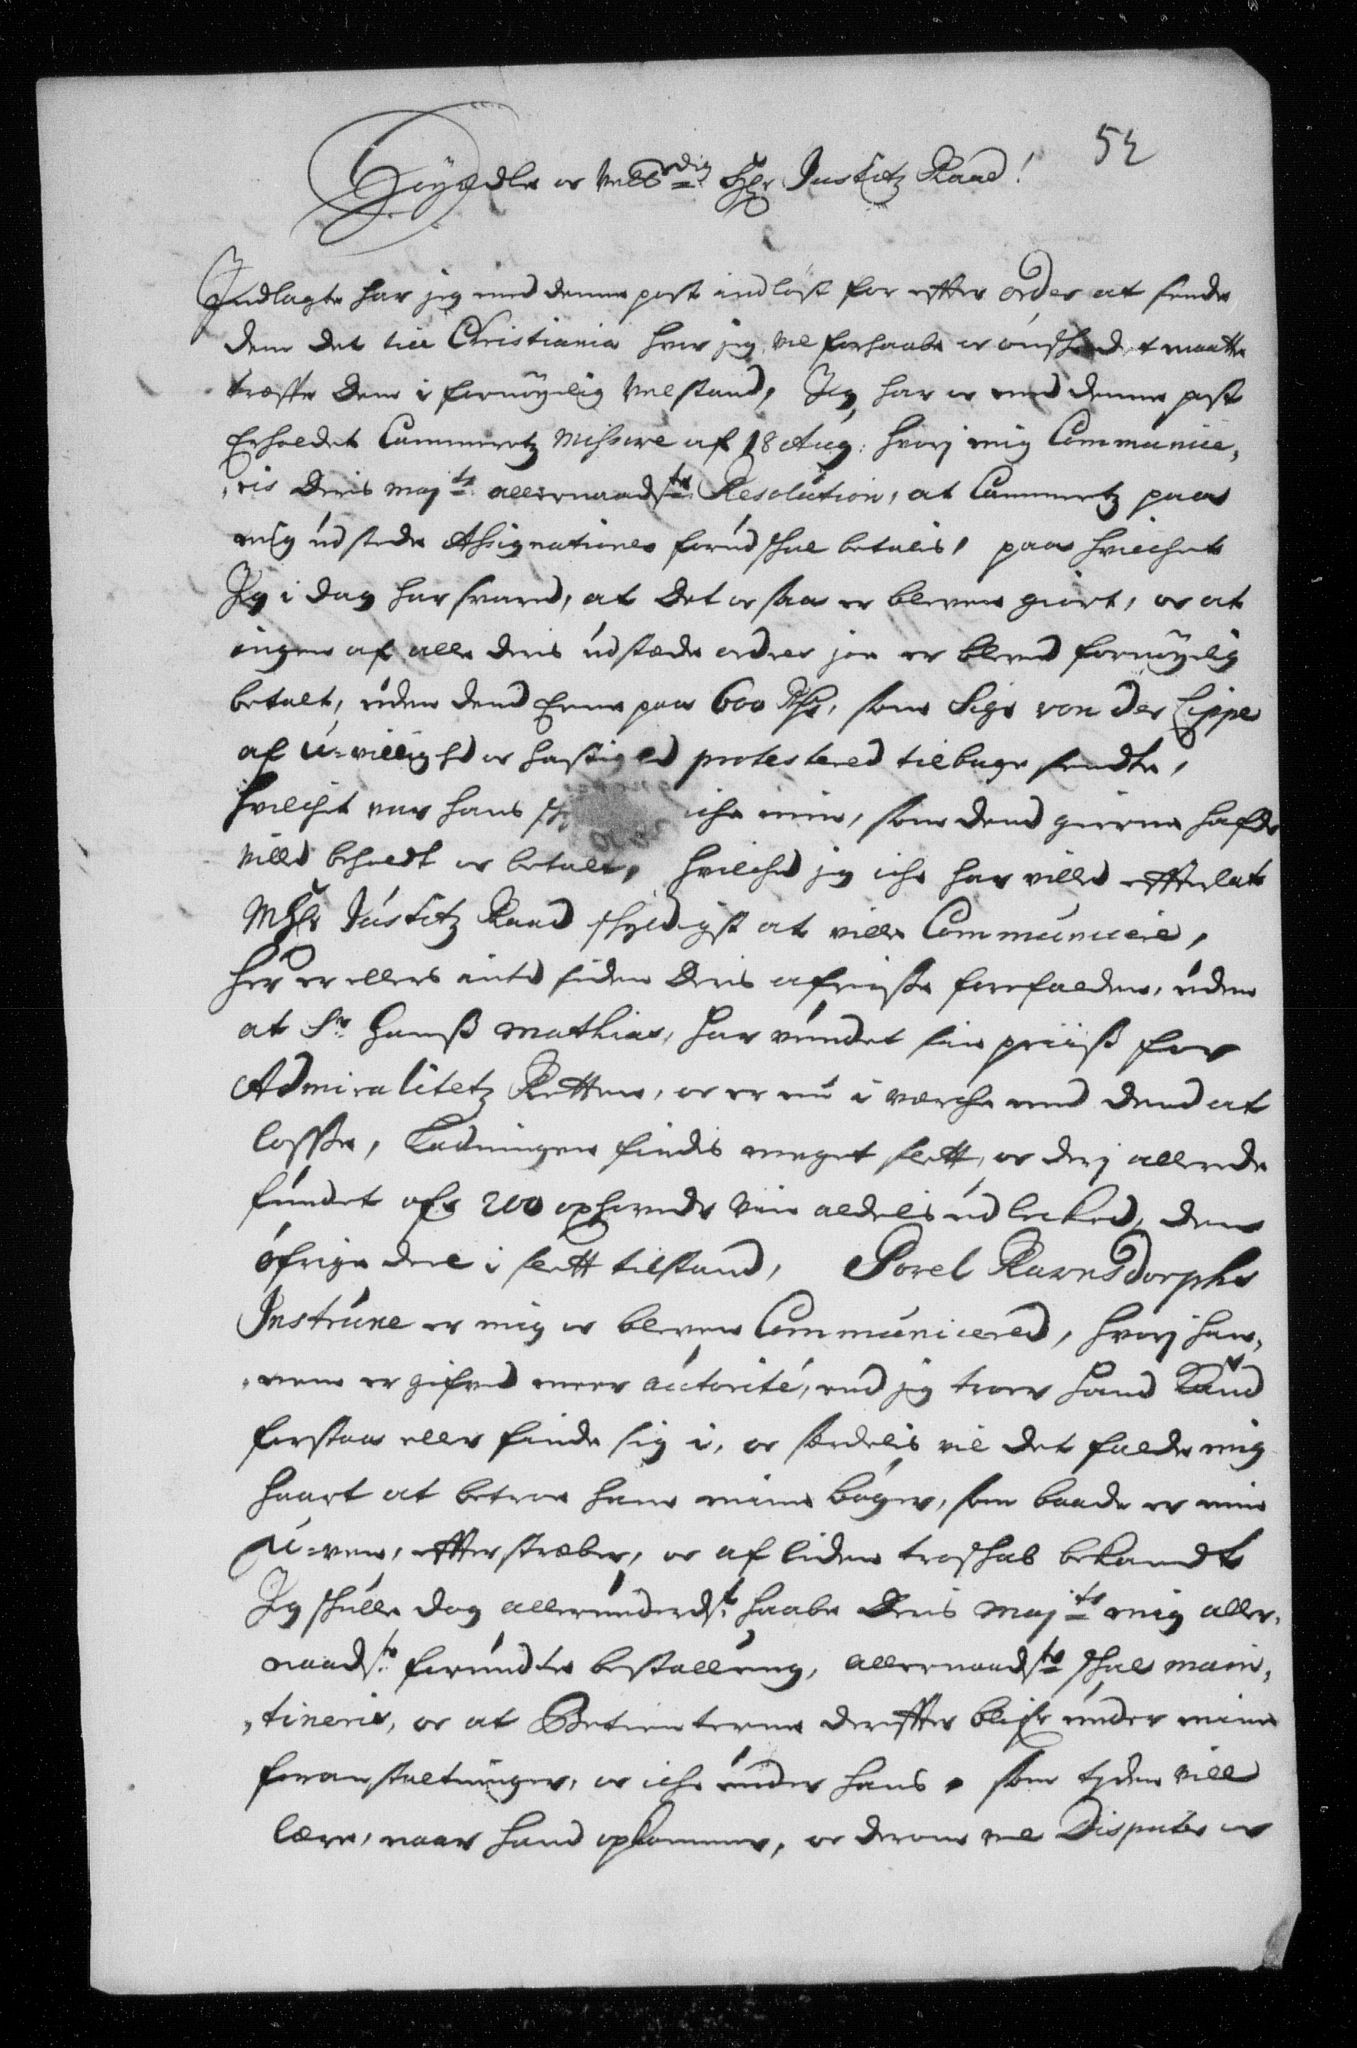 52
Høyædle oc Velbrdig Hr Justitz Raad!
Indlagte har jeg med denne post indløst for efter ordre at sende
dem det till Christiania hvor jeg vel forhaaber oc ønscher det maatte
træffe dem i fornøyelig Velstand, Jeg har oc med denne post
Erholdet Cammeretz Missive af 18 Aug: hvorj mig Communice,
,ris Deris majts allernaadste Resolution, at Cammeretz paa
mig udstede Assignationer forud schal betalis, paa hvilchet
Jeg i dag har svared, at det ossaa er bleven giort, oc at
ingen af alle deris udstæde ordres jo er blevd fornøyelig
betalt, uden dend Eene paa 600 Rdr, som Sigr von der Lippe
af U-villighd oc hastighed protestered tilbage sendte,
hvilchet var hans iche min, som dend gierne hafde
villed beholdt oc betalt, hvilched jeg iche har villed efterlate
MHr Justitz Raad schyldigst at ville Communicere,
Her er ellers intd siden Deris afreise forefalden, uden
at Sr Hanss Mathias, har vundet sin priiss for
Admiralitetz Retten, oc er nu i værche med dend at
losse, Ladningen findis meget slett, oc derj allerede
fundet ofr 200 oxhoveder Viin aldelis udlecked, den
øfrige deel i slett tilstand, Povel Ravnsdorphs
Instruxe er mig oc bleven Communicered, hvorj han,
,nem er gifved meer autorité, end jeg troer hand Kand
forstaa eller finde sig i, oc særdelis vil det falde mig
haart at betroe ham mine bøger, som baade er min
U-ven, efterstræber, oc af liden troschab bekandt
Jeg schulle dog allerunderdst haabe Deris Majts mig aller,
naadst forundte bestalling, allernaadste schal main,
,tineris, oc at Betienterne derefter blifr under mine
foranstaltninger, oc iche under hans, som tyden vill
lære, naar hand opkommer, oc derom vel Disputer oc